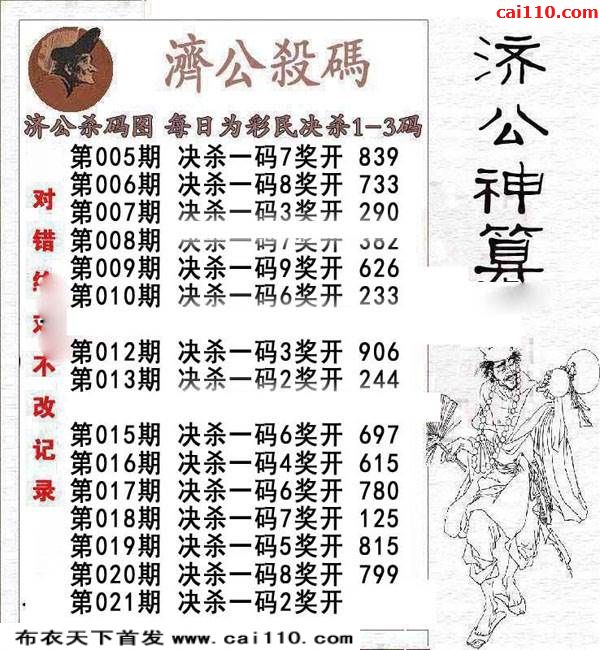 cai110.com
濟公殺碼
济公杀码图 每日为彩民决杀1-3码
第005期 决杀一码7奖开 839
第006期 决杀一码8奖开 733
第007期 决杀一码3奖开 290
第008期 决杀一码7奖开 382
第009期 决杀一码9奖开 626
第010期 决杀一码6奖开 233
第012期 决杀一码3奖开 906
第013期 决杀一码2奖开 244
第015期 决杀一码6奖开 697
第016期 决杀一码4奖开 615
第017期 决杀一码6奖开 780
第018期 决杀一码7奖开 125
第019期 决杀一码5奖开 815
第020期 决杀一码8奖开 799
第021期 决杀一码2奖开
对错 不改记录
济公神算
布衣天下首发 www.cai110.com